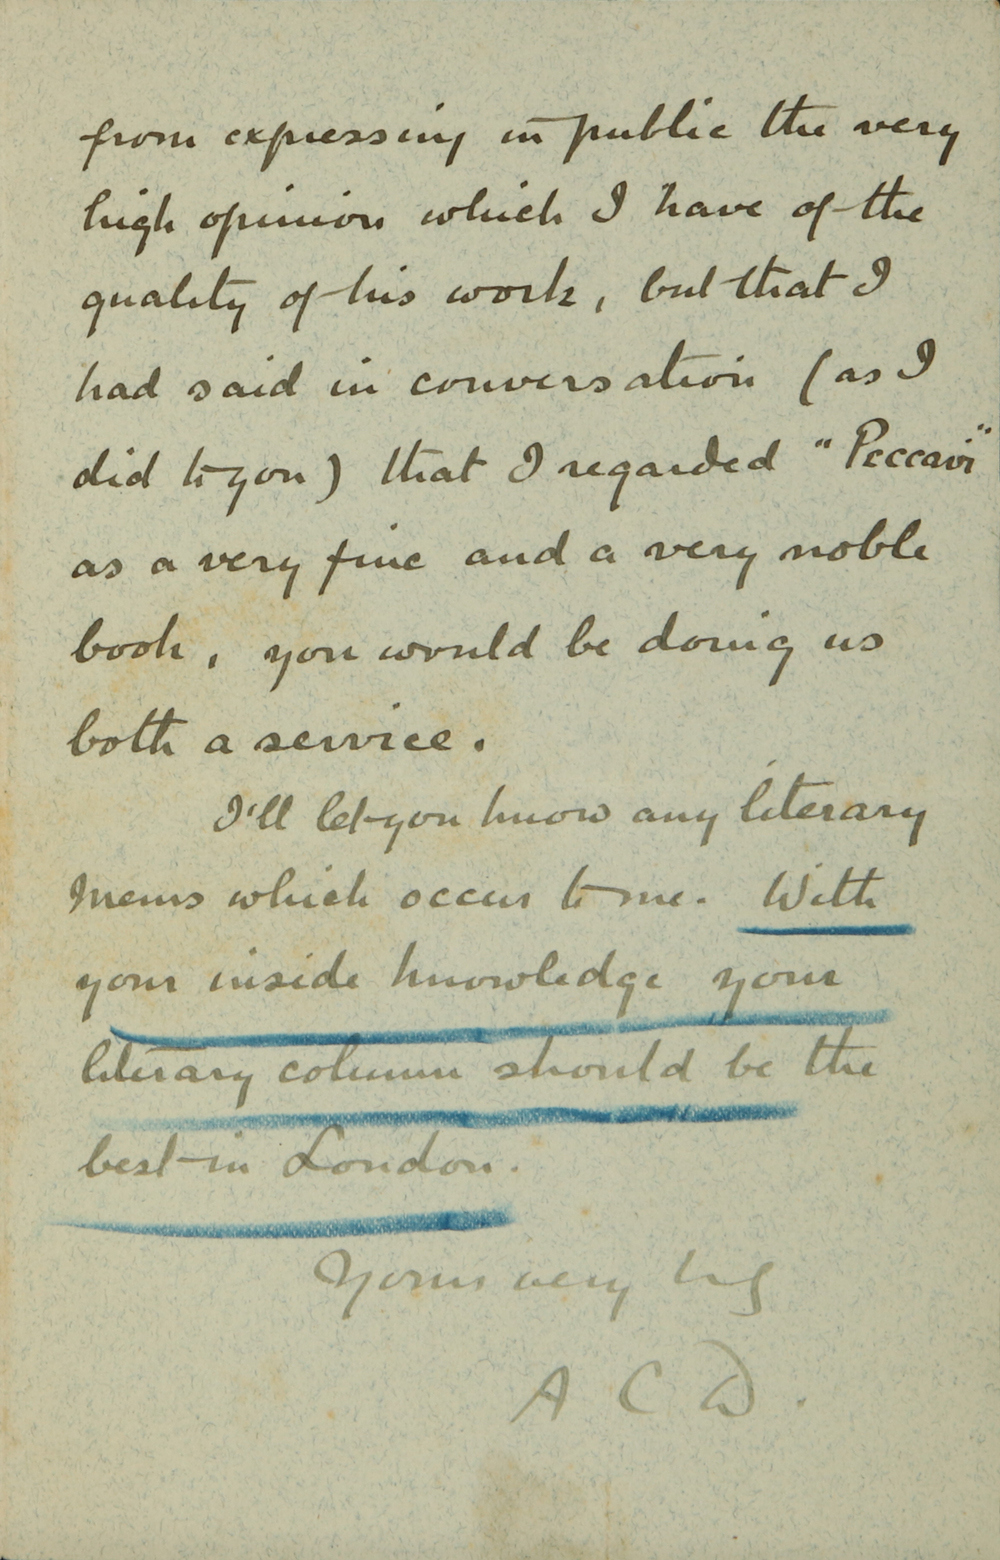 from expressing in public the very
high opinion which I have of the
quality of his work, but that I
had said in conversation (as I
did to you) that I regarded "Peccavi"
as a very fine and a very noble
book, you would be doing us
both a service.
I'll let you know any literary
items which occur to me. With
your inside knowledge your
literary column should be the
best in London.
Yours very
A C D.